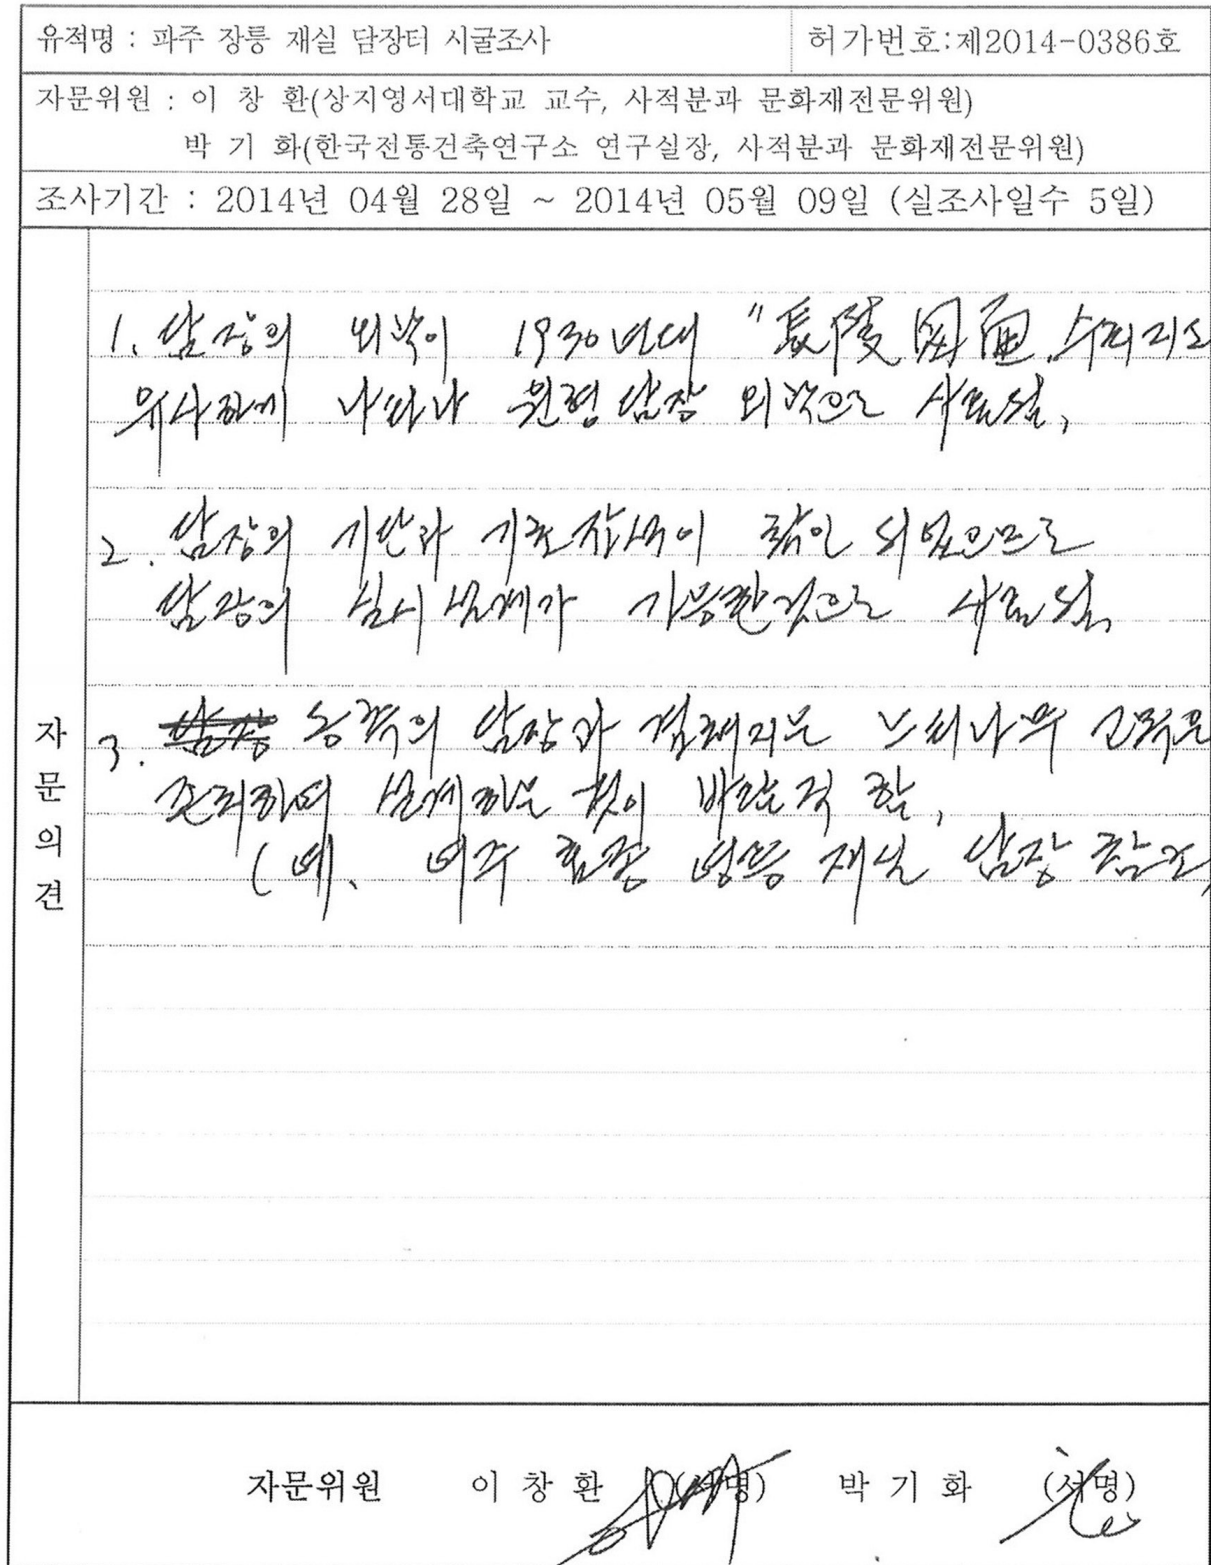 유적명 : 파주 장릉 재실 담장터 시굴조사
허가번호:제2014-0386호
자문위원 : 이 창 환(상지영서대학교 교수, 사적분과 문화재전문위원)
박 기 화(한국전통건축연구소 연구실장, 사적분과 문화재전문위원)
조사기간 : 2014년 04월 28일 ~ 2014년 05월 09일 (실조사일수 5일)
자문의견
1. 담장의 외곽이 1930년대 "長陵 図面
유사하게 나타나 원형 담장 외곽으로 사료됨,
2. 담장의 기단과 기초 잡석이 확인 되었으므로
담장의 실시설계가 가능한것으로 사료됨,
3. 담장과 느티나무
설계하는 것이 바람직 함,
(예, 여주 효종 영릉 재실 담장 참조,
자문위원 이 창 환 (서명) 박 기 화 (서명)